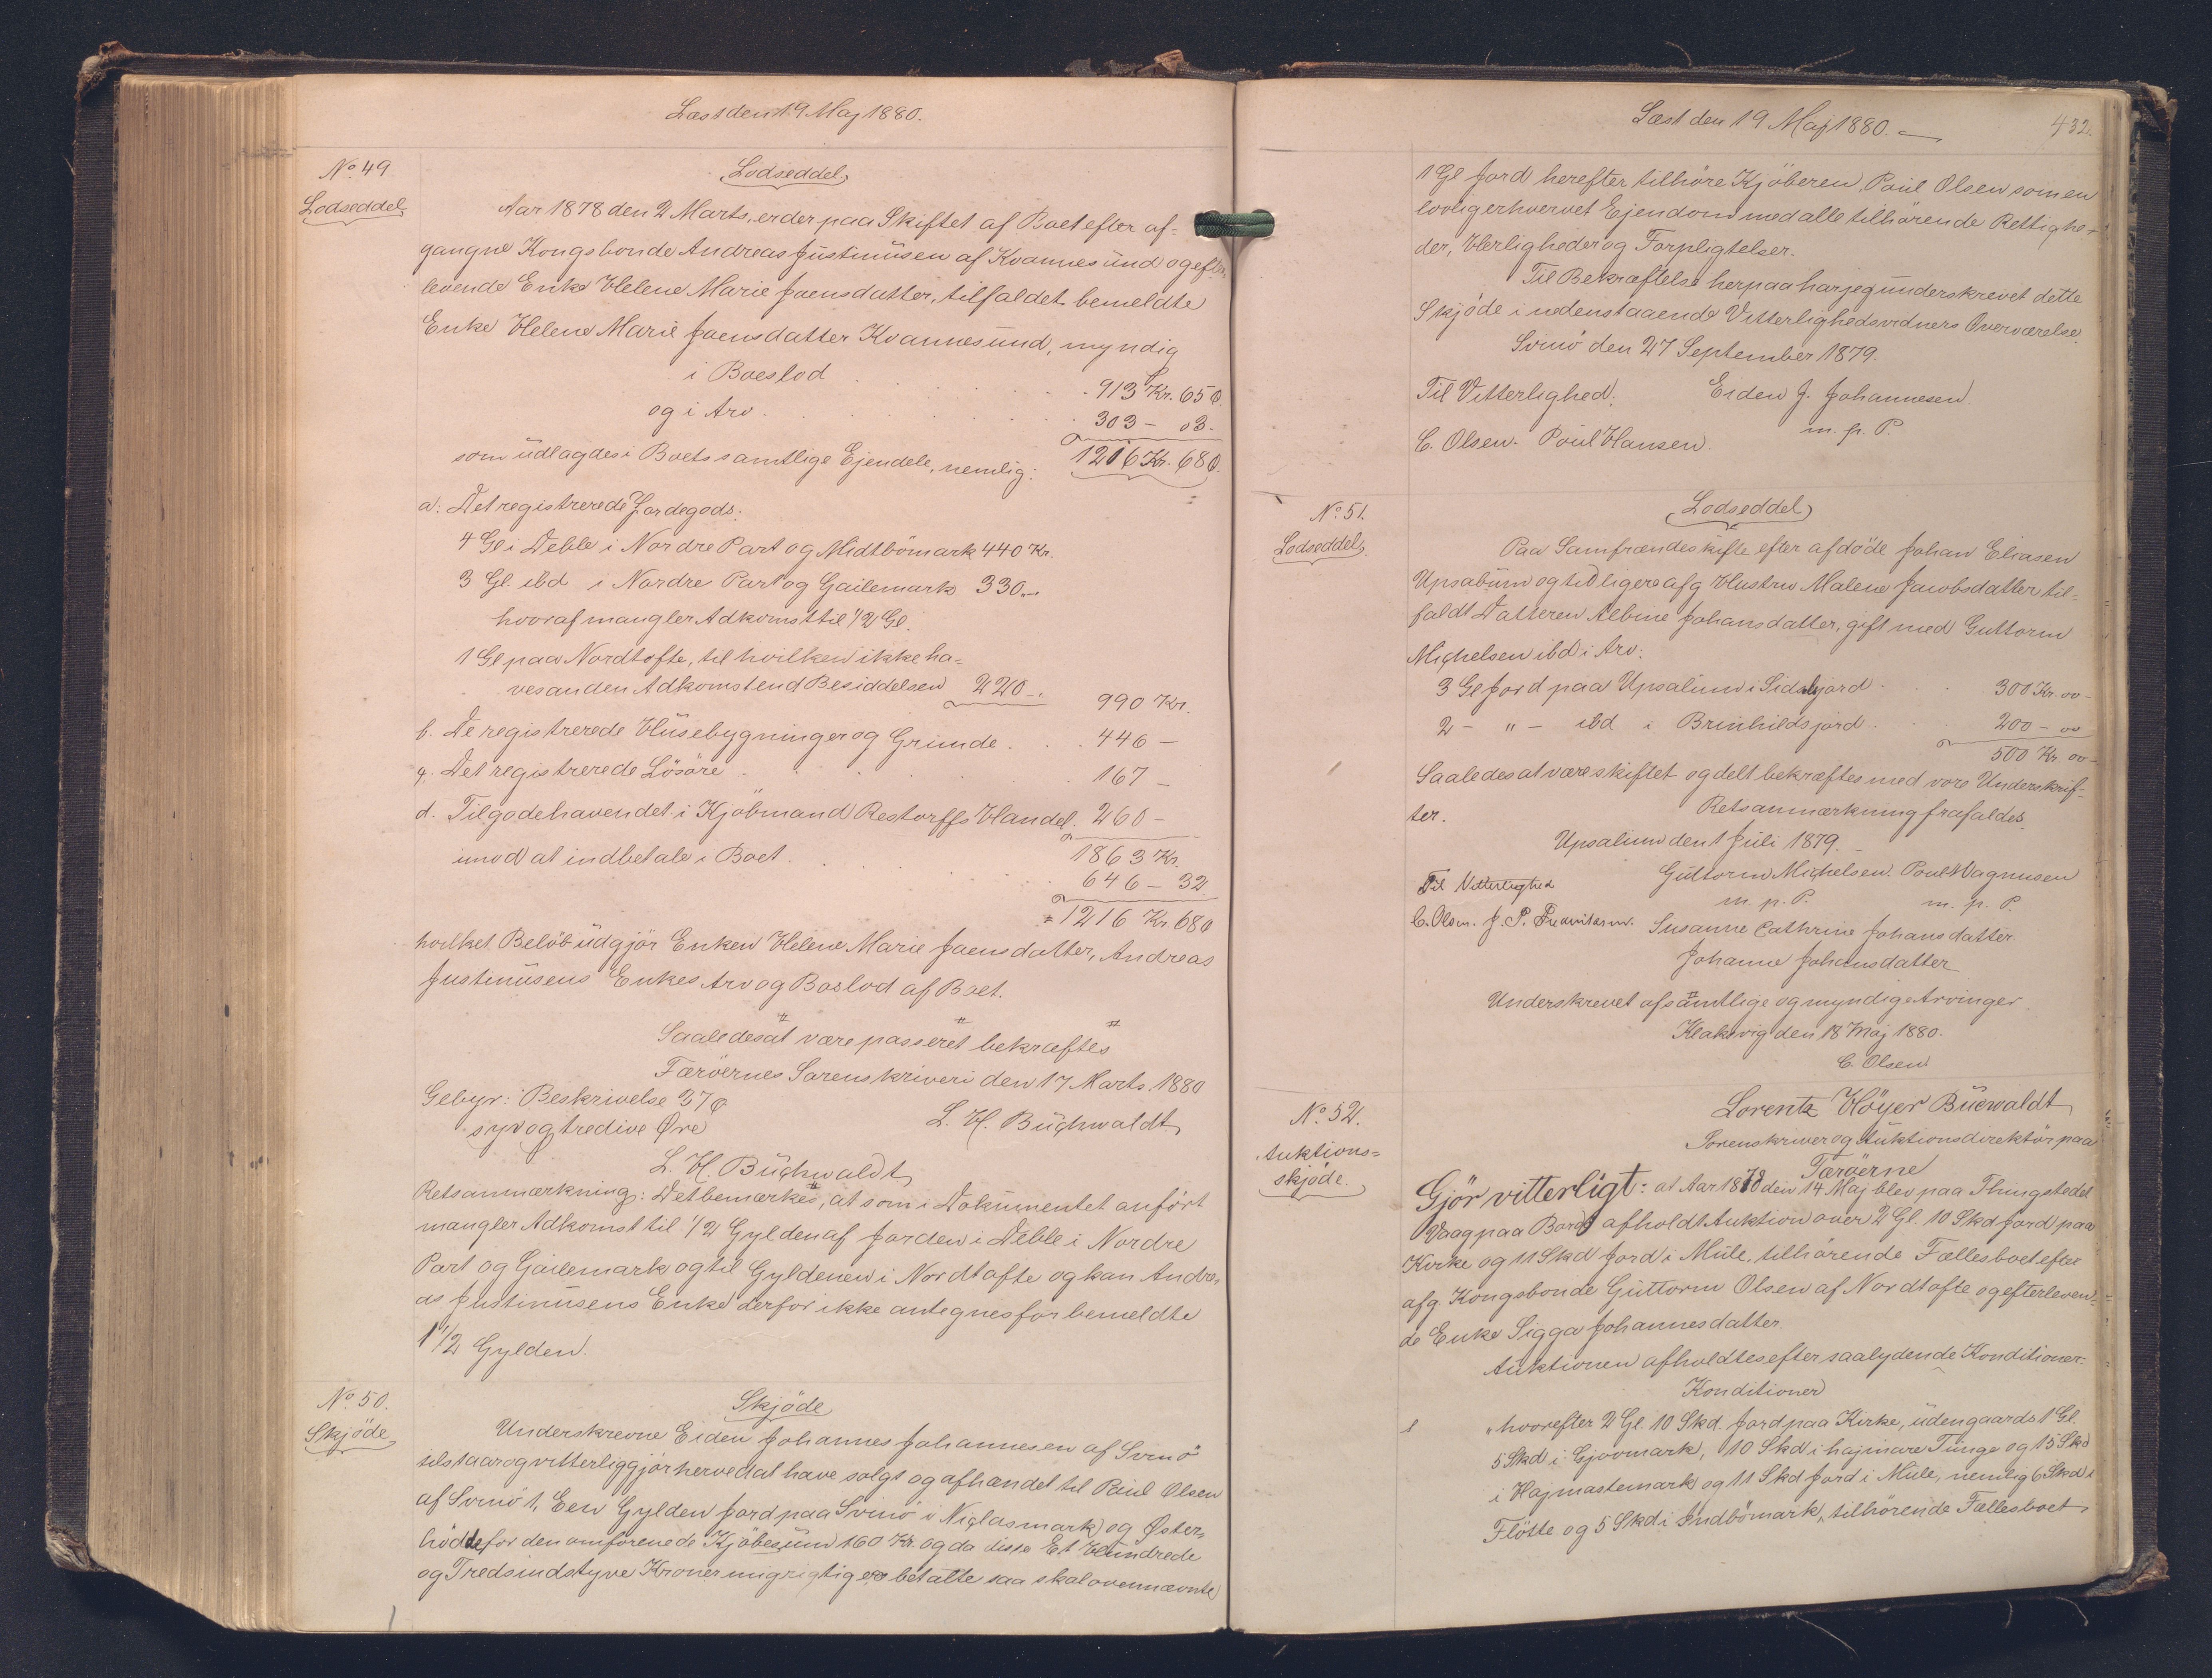 Læst den 19 Maj 1880.
No. 49
Lodseddel
Lodseddel
Aar 1878 den 2 Marts, er der paa Skiftet af Boet efter af-
gangne Kongsbonde Andreas Justinusen af Kvannesund og efter-
levende Enke Helene Marie Joensdatter, tilfaldet bemeldte
Enke Helene Marie Joensdatter Kvannesund, myndig
i Boeslod . . . . . 913 Kr. 65 Ø.
og i Arv . . . . . 303 – 03 -
1216 Kr. 68 Ø.
som udlagdes i Boets samtlige Ejendele, nemlig:
a: Det registrerede Jordegods:
4 Gl i Deble i Nordre Part og Midtbömark 440 Kr.
3 Gl. ibd i Nordre Part og Gailemark 330 „-
hvoraf mangler Adkomst til 1/2 Gl.
1 Gl paa Nordtofte, til hvilken ikke ha-
ves anden Adkomst end Besiddelsen 220 -. 990 Kr.
b. De registrerede Husebygninger og Grunde . . . 446 –
c. Det registrerede Lösöre . . . . 167 –
d. Tilgodehavendet i Kjöbmand Restorffs Handel. 260 –
1863 Kr.
imod at indbetale i Boet . . . . . 646 – 32
= 1216 Kr. 68 Ø
hvilket Belöb udgjör Enken Helene Marie Joensdatter, Andreas
Justinusens Enkes Arv og Boslod af Boet.
Saaledes at være passeret bekræftes
Færöernes Sorenskriveri den 17 Marts 1880
Gebyr: Beskrivelse 37 Ø
syv og tredive Øre
L. H. Buchwaldt
L. H. Buchwaldt
Retsanmærkning: Det bemærkes, at som i Dokumentet anfört
mangler Adkomst til 1/2 Gylden af Jorden i Deble i Nordre
Part og Gailemark og til Gyldenen i Nordtofte og kan Andre-
as Justinusens Enke derfor ikke antegnes for bemeldte
1 1/2 Gylden.
No. 50.
Skjöde
Skjöde
Underskrevne Eiden Johannes Johannesen af Svinö
tilstaar og vitterliggjör herved at have solgt og afhændet til Poul Olsen
af Svinö 1, Een Gylden Jord paa Svinö i Niclasmark og Øster-
hödde for den omforenede Kjöbesum 160 Kr. og da disse Et Hundrede
og Tredsindstyve Kroner mig rigtig ere betalte saa skal ovennævnte
Læst den 19 Maj 1880. –
432.
1 Gl Jord herefter tilhöre Kjöberen Poul Olsen som en
lovlig erhvervet Ejendom med alle tilhörende Rettighe-
der, Herligheder og Forpligtelser.
Til Bekræftelse herpaa har jeg underskrevet dette
Skjöde i nedenstaaende Vitterlighedsvidners Overværelse.
Svinö den 27 September 1879.
Til Vitterlighed: Eiden J. Johannesen
m. p. P.
C. Olsen. Poul Hansen.
No. 51.
Lodseddel
Lodseddel
Paa Samfrændeskifte efter afdöde Johan Eliasen
Upsalum og tidligere afg Hustru Malene Jacobsdatter til-
faldt Datteren Albine Johansdatter, gift med Guttorm
Michelsen ibd i Arv:
3 Gl Jord paa Upsalum i Sidstejord . . . 300 Kr. 00 -
2 – „ – ibd i Brinhildsjord . . . 200 – 00
500 Kr. 00 -
Saaledes at være skiftet og delt bekræftes med vore Underskrif-
ter. Retsanmærkning frafaldes.
Upsalum den 1 Juli 1879.
Til Vitterlighed Guttorm Michelsen. Poul Magnusen
m. p. P. m. p. P.
C. Olsen. J. P. Susanne Cathrine Johansdatter
Johanne Johansdatter
Underskrevet af samtlige og myndige Arvinger
Klaksvig den 18 Maj 1880.
C. Olsen
No. 52.
Auktions-
skjöde.
Lorentz Höyer Buchwaldt
Sorenskriver og Auktionsdirektör paa
Færöerne
Gjör vitterligt: at Aar 1878 den 14 Maj blev paa Thingstedet
Vaag paa Bordö afholdt Auktion over 2 Gl. 10 Skd Jord paa
Kirke og 11 Skd Jord i Mule, tilhörende Fællesboet efter
afg. Kongsbonde Guttorm Olsen af Nordtofte og efterleven-
de Enke Sigga Johannesdatter.
Auktionen afholdtes efter saalydende Konditioner:
Konditioner
„hvorefter 2 Gl. 10 Skd. Jord paa Kirke, udengaards 1 Gl.
5 Skd i Gjovmark, 10 Skd i hajmare Tunge og 15 Skd
i Hajmastemark og 11 Skd Jord i Mule, nemlig 6 Skd i
Flötte og 5 Skd i Indbömark, tilhörende Fællesboet